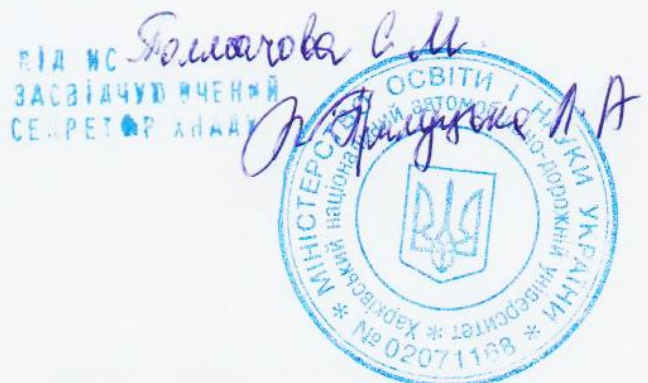 ПІДПИС Толмачова С.М.
ЗАСВІДЧУЮ ВЧЕНИЙ
СЕКРЕТАР ХНАДУ Прилуцька Л А
МІНІСТЕРСТВО ОСВІТИ І НАУКИ УКРАЇНИ
Харківський національний автомобільно-дорожній університет
№ 02071168